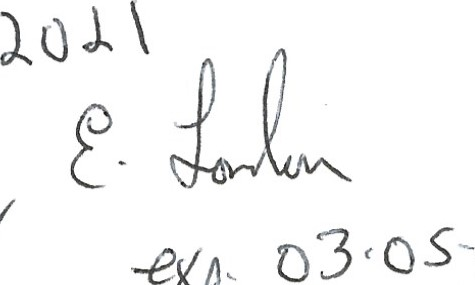 2021
E. London
exp. 03.05